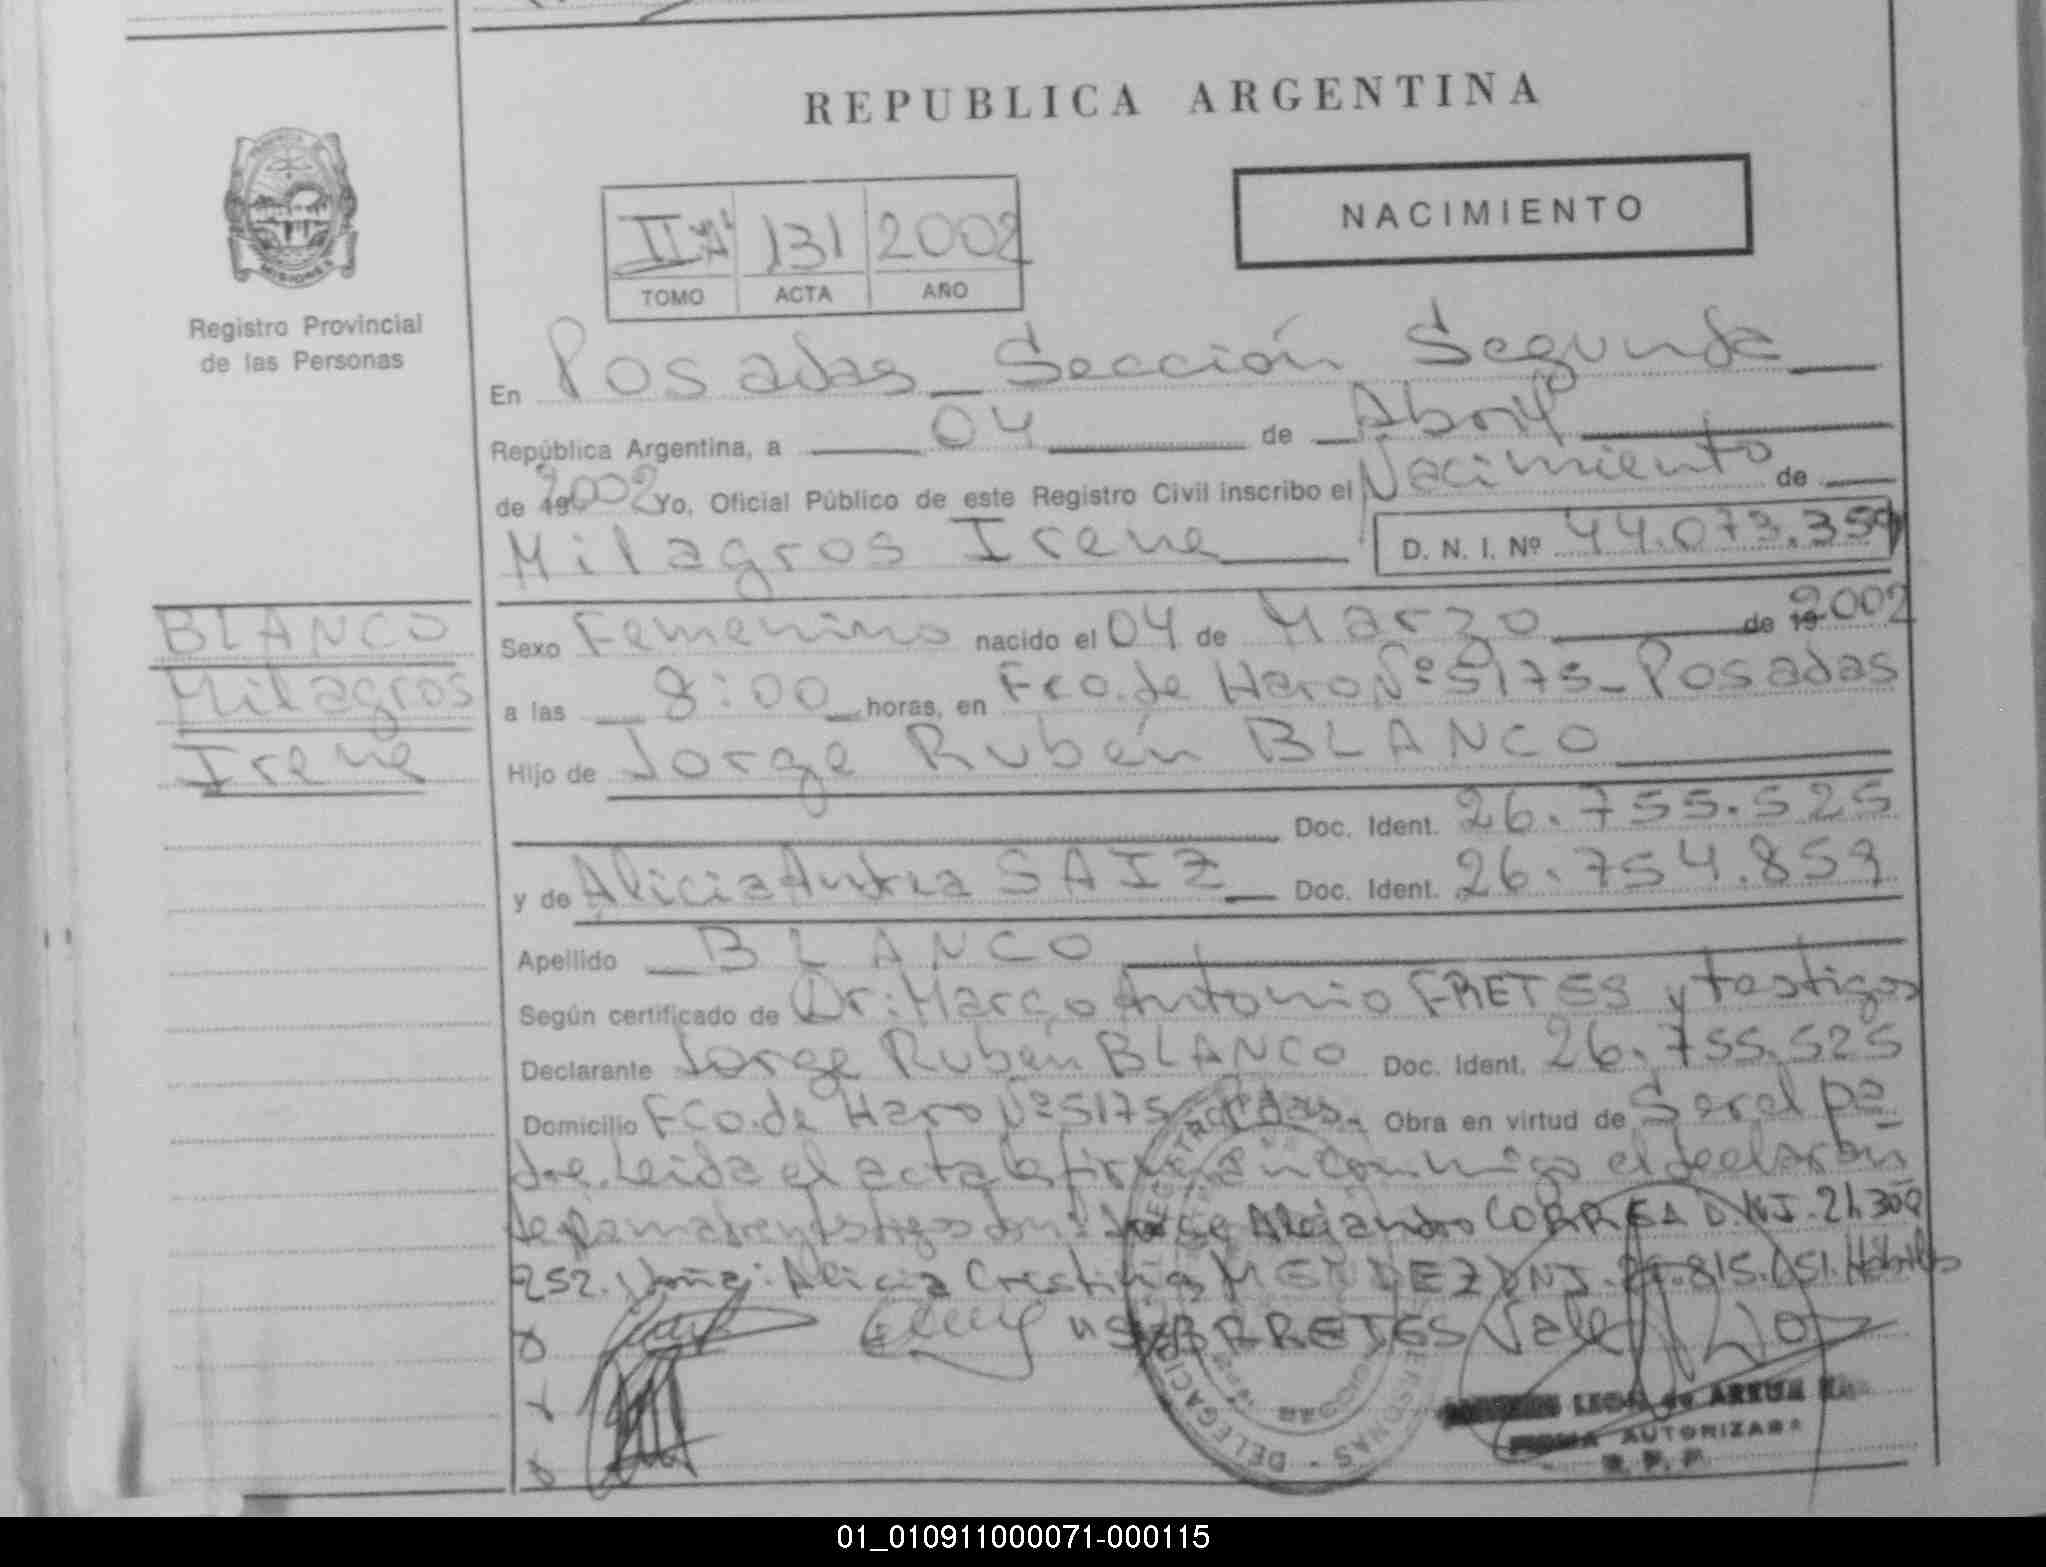 REPUBLICA ARGENTINA
NACIMIENTO
131 2002
TOMO ACTA AÑO
MISIONES
Registro Provincial
de las Personas
En Posadas _ Sección Segunda
República Argentina, a 04 de Abril
de 19 2002 Yo, Oficial Público de este Registro Civil inscribo el Nacimiento de
Milagros Irene
D. N. I. Nº 44.073.359
BLANCO
Milagros
Irene
Sexo Femenino nacido el 04 de Marzo de 19 2002
a las 8:00 horas, en Fco. de Haro Nº 5175 _ Posadas
Hijo de Jorge Rubén BLANCO
Doc. Ident. 26.755.525
y de Alicia SAIZ Doc. Ident. 26.754.859
Apellido BLANCO
Según certificado de Dr: Marco Antonio FRETES y testigos
Declarante Jorge Rubén BLANCO Doc. Ident. 26.755.525
Domicilio Fco. de Haro Nº 5175 Pdas. Obra en virtud de Ser el pa
dre. Leída el acta la firman conmigo el declaran
te Jorge Alejandro CORREA D.N.I. 21.302
252. Doña: Alicia Cristina MENDEZ DNI. .815.051. Hábiles
"S/BRRETES Vale
AUTORIZADA
R. P. P.
01_010911000071-000115